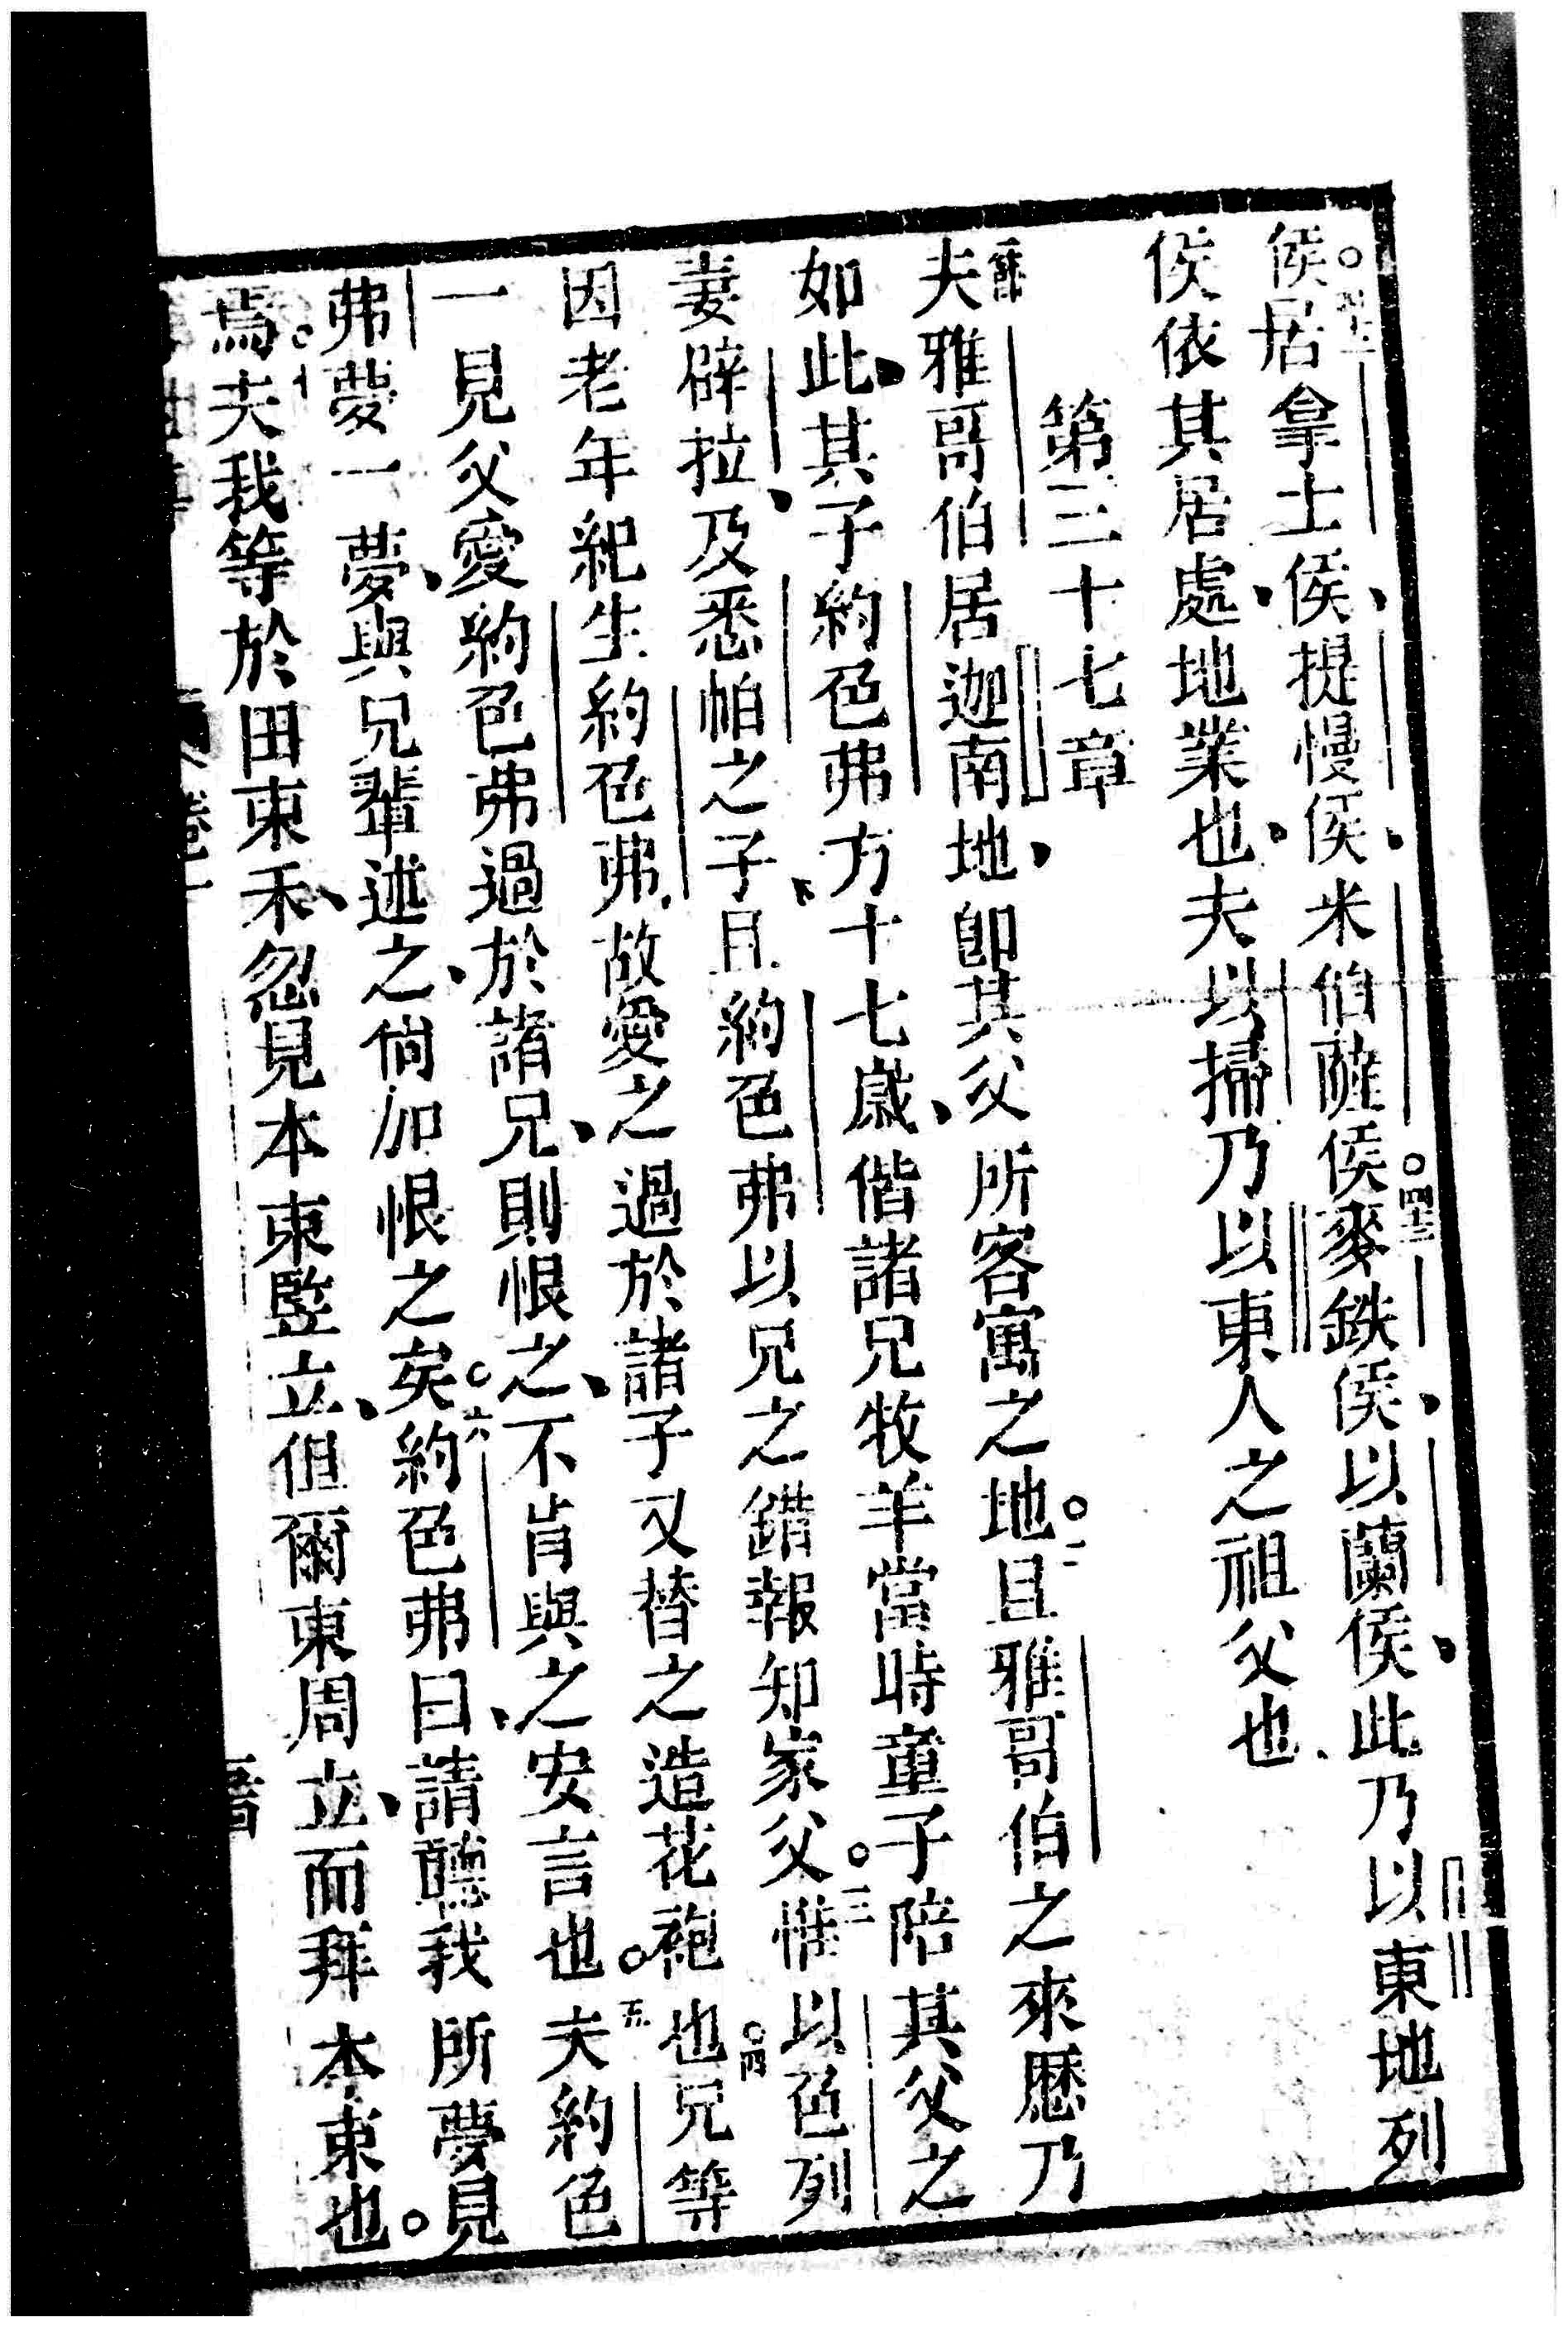 侯○四十二居拿士侯、提慢侯、米伯薩侯○四十三麥鉄侯、以蘭侯、此乃以東地列
侯依其居處、地業也、夫以掃乃以東人之祖父也、
第三十七章
夫雅哥伯居迦南地、卽其父所客寓之地○二且雅哥伯之來歷乃
如此、其子約色弗方十七歲、偕諸兄牧羊當時童子陪其父之
妻辟拉、及悉帕之子、且約色弗以兄之錯報知家父○三惟以色列
因老年紀生約色弗、故愛之過於諸子又替之造花袍也○四兄等
一見父愛約色弗過於諸兄、則恨之、不肯與之安言也○五夫約色
弗夢一夢、與兄輩述之、倘加恨之矣○六約色弗曰、請聽我所夢見
焉○七夫我等於田束禾、忽見本束竪立、但爾束周立、而拜本束也。